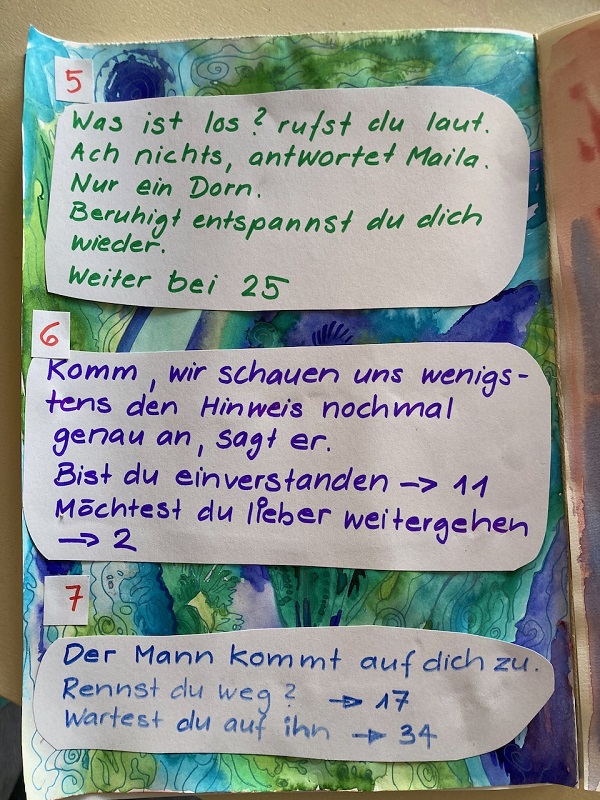 5
Was ist los? rufst du laut.
Ach nichts, antwortet Maila.
Nur ein Dorn.
Beruhigt entspannst du dich
wieder.
Weiter bei 25
6
Komm, wir schauen uns wenigs-
tens den Hinweis nochmal
genau an, sagt er.
Bist du einverstanden → 11
Möchtest du lieber weitergehen
→ 2
7
Der Mann kommt auf dich zu.
Rennst du weg? → 17
Wartest du auf ihn → 34